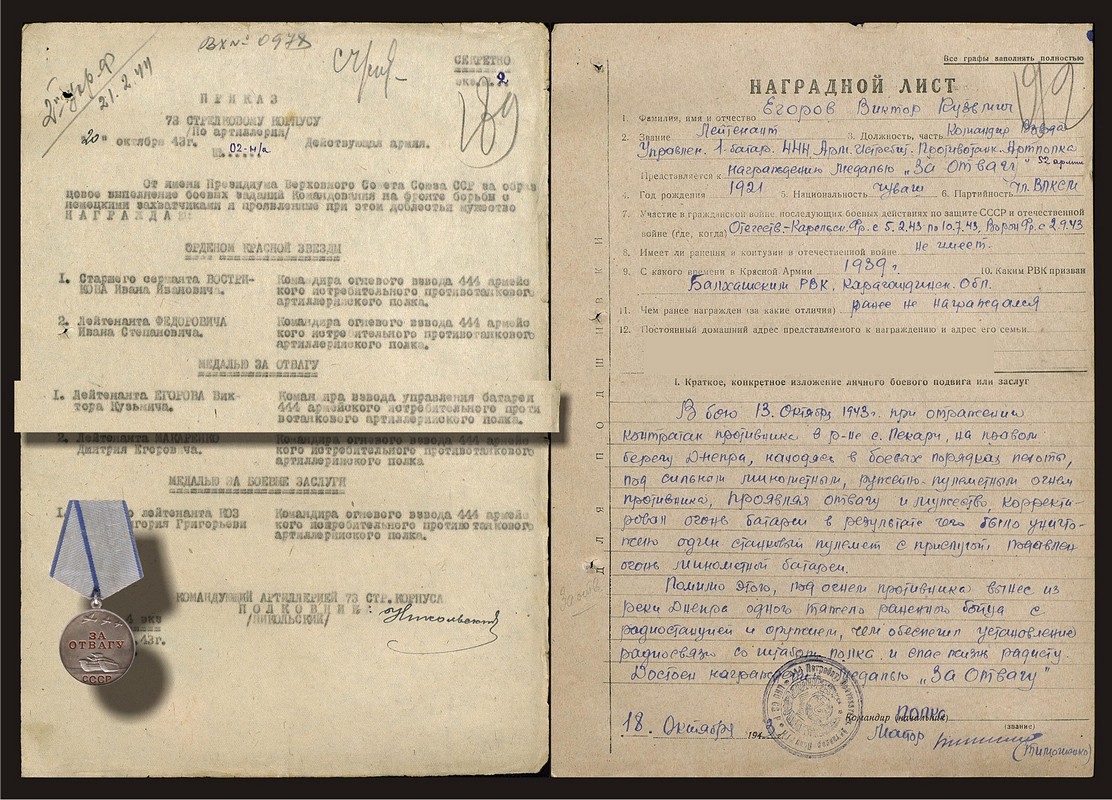 Вх№ 0978
21.2.44
СЕКРЕТНО
экз. 2
189
ПРИКАЗ
73 СТРЕЛКОВОМУ КОРПУСУ
/По артиллерии/
"20" октября 43г. № 02-н/л Действующая армия.
От имени Президиума Верховного Совета Союза ССР за образ
цовое выполнение боевых заданий Командования на фронте борьбы с
немецкими захватчиками и проявленные при этом доблесть и мужество
НАГРАЖДАЮ:
ОРДЕНОМ КРАСНОЙ ЗВЕЗДЫ
1. Старшего сержанта ВОСТРИ- Командира огневого взвода 444 армейс
КОВА Ивана Ивановича. кого истребительного противотанкового
артиллерийского полка.
2. Лейтенанта ФЕДОРОВИЧА Командира огневого взвода 444 армейс
Ивана Степановича. кого истребительного противотанкового
артиллерийского полка.
МЕДАЛЬЮ ЗА ОТВАГУ
1. Лейтенанта ЕГОРОВА Вик- Коман ира взвода управления батареи
тора Кузьмича. 444 армейского истребительного проти
вотанкового артиллерийского полка.
2. Лейтенанта МАКАРЕНКО Командира огневого взвода 444 армейс
Дмитрия Егоровича. кого истребительного противотанкового
артиллерийского полка
МЕДАЛЬЮ ЗА БОЕВЫЕ ЗАСЛУГИ
1. лейтенанта КОЗ Командира огневого взвода 444 армейс
Григория Григорьеви кого истребительного противотанкового
артиллерийского полка.
КОМАНДУЮЩИЙ АРТИЛЛЕРИЕЙ 73 СТР.КОРПУСА
ПОЛКОВНИК:
/НИКОЛЬСКИЙ/
4 экз
43г.
ЗА
ОТВАГУ
СССР
ДЛЯ ПОДШИВКИ
Все графы заполнять полностью
НАГРАДНОЙ ЛИСТ
1. Фамилия, имя и отчество Егоров Виктор Кузьмич
2. Звание Лейтенант 3. Должность, часть Командир Взвода
Управлен. 1-батар. 444 Арм. Истребит. Противотанк. Артполка
52 армии
Представляется к награждению медалью „За Отвагу"
4. Год рождения 1921 5. Национальность чуваш 6. Партийность Чл. ВЛКСМ
7. Участие в гражданской войне, последующих боевых действиях по защите СССР и отечественной
войне (где, когда) Отечеств-Карельск. Фр. с 5.2.43 по 10.7.43, Ворон Фр. с 2.9.43
8. Имеет ли ранения и контузии в отечественной войне Не имеет.
9. С какого времени в Красной Армии 1939 г. 10. Каким РВК призван
Балхашским РВК, Карагандинск. Обл.
11. Чем ранее награжден (за какие отличия) ранее не награждался
12. Постоянный домашний адрес представляемого к награждению и адрес его семьи
I. Краткое, конкретное изложение личного боевого подвига или заслуг
В бою 13. Октября 1943г. при отражении
контратак противника в р-не с. Пекари, на правом
берегу Днепра, находясь в боевых порядках пехоты,
под сильным минометным, ружейно-пулеметным огнем
противника, проявляя отвагу и мужество, корректи-
ровал огонь батареи в результате чего было уничто-
жено один станковый пулемет с прислугой, подавлен
огонь минометной батареи.
Помимо этого, под огнем противника вынес из
реки Днепра одного тяжело раненного бойца с
радиостанцией и оружием, чем обеспечил установление
радиосвязи со штабом полка и спас жизнь радисту.
Достоен награждения медалью „За Отвагу"
Командир (начальник) Полка
18. Октября 1943 Майор
(звание)
(Тимошенко)